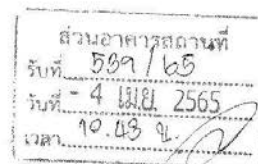 ส่วนอาคารสถานที่
รับที่ 539/65
วันที่ - 4 เม.ย. 2565
เวลา 10.43 น.